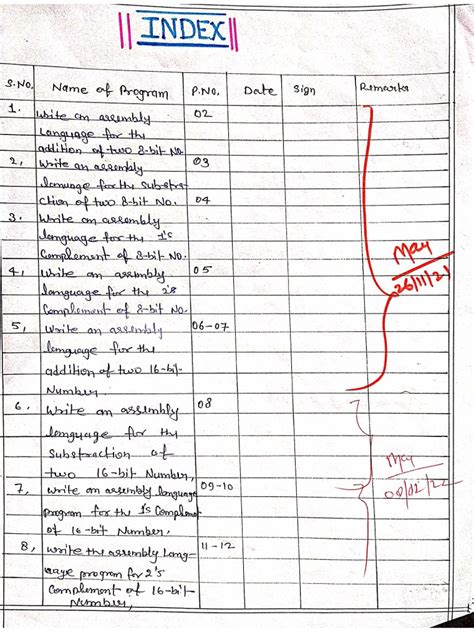 INDEX
S.No. Name of Program P.No. Date Sign Remarks
1. Write an assembly 02
Language for the
addition of two 8-bit No.
2, Write an assembly 03
language for the Substra-
ction of two 8-bit No. 04
3. Write an assembly
language for the 1's
Complement of 8-bit No.
4, Write an assembly 05
language for the 2's
Complement of 8-bit No.
5, Write an assembly 06-07
language for the
addition of two 16-bit
Number.
6. Write an assembly 08
language for the
Substraction of
two 16-bit Number,
7, Write an assembly language 09-10
program for the 1's Complement
of 16-bit Number.
8, Write the assembly Lang- 11-12
uage program for 2's
Complement of 16-bit
Number,
26/11/21